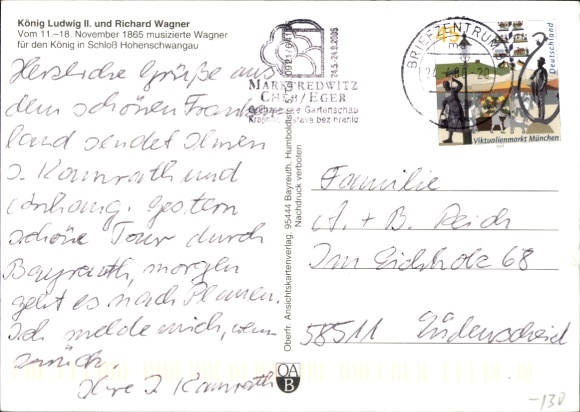 König Ludwig II. und Richard Wagner
Vom 11.–18. November 1865 musizierte Wagner
für den König in Schloß Hohenschwangau
Herzliche Grüße aus
dem schönen Franken-
land sendet Ihnen
J. Kamrath und
Anhang. Gestern
schöne Tour durch
Bayreuth, morgen
geht es nach Plauen.
Ich melde mich, wenn
zurück.
Ihre J. Kamrath
Oberfr. Ansichtskartenverlag, 95444 Bayreuth, Humboldtstr.
Nachdruck verboten
24.5-24.9.2006
MARKTREDWITZ
CHEB/EGER
Gartenschau
bez hranic
BRIEFZENTRUM
45
Deutschland
Viktualienmarkt München
Familie
A. + B. Reich
Im Eichholz 68
58511 Lüdenscheid
OA
B
-130